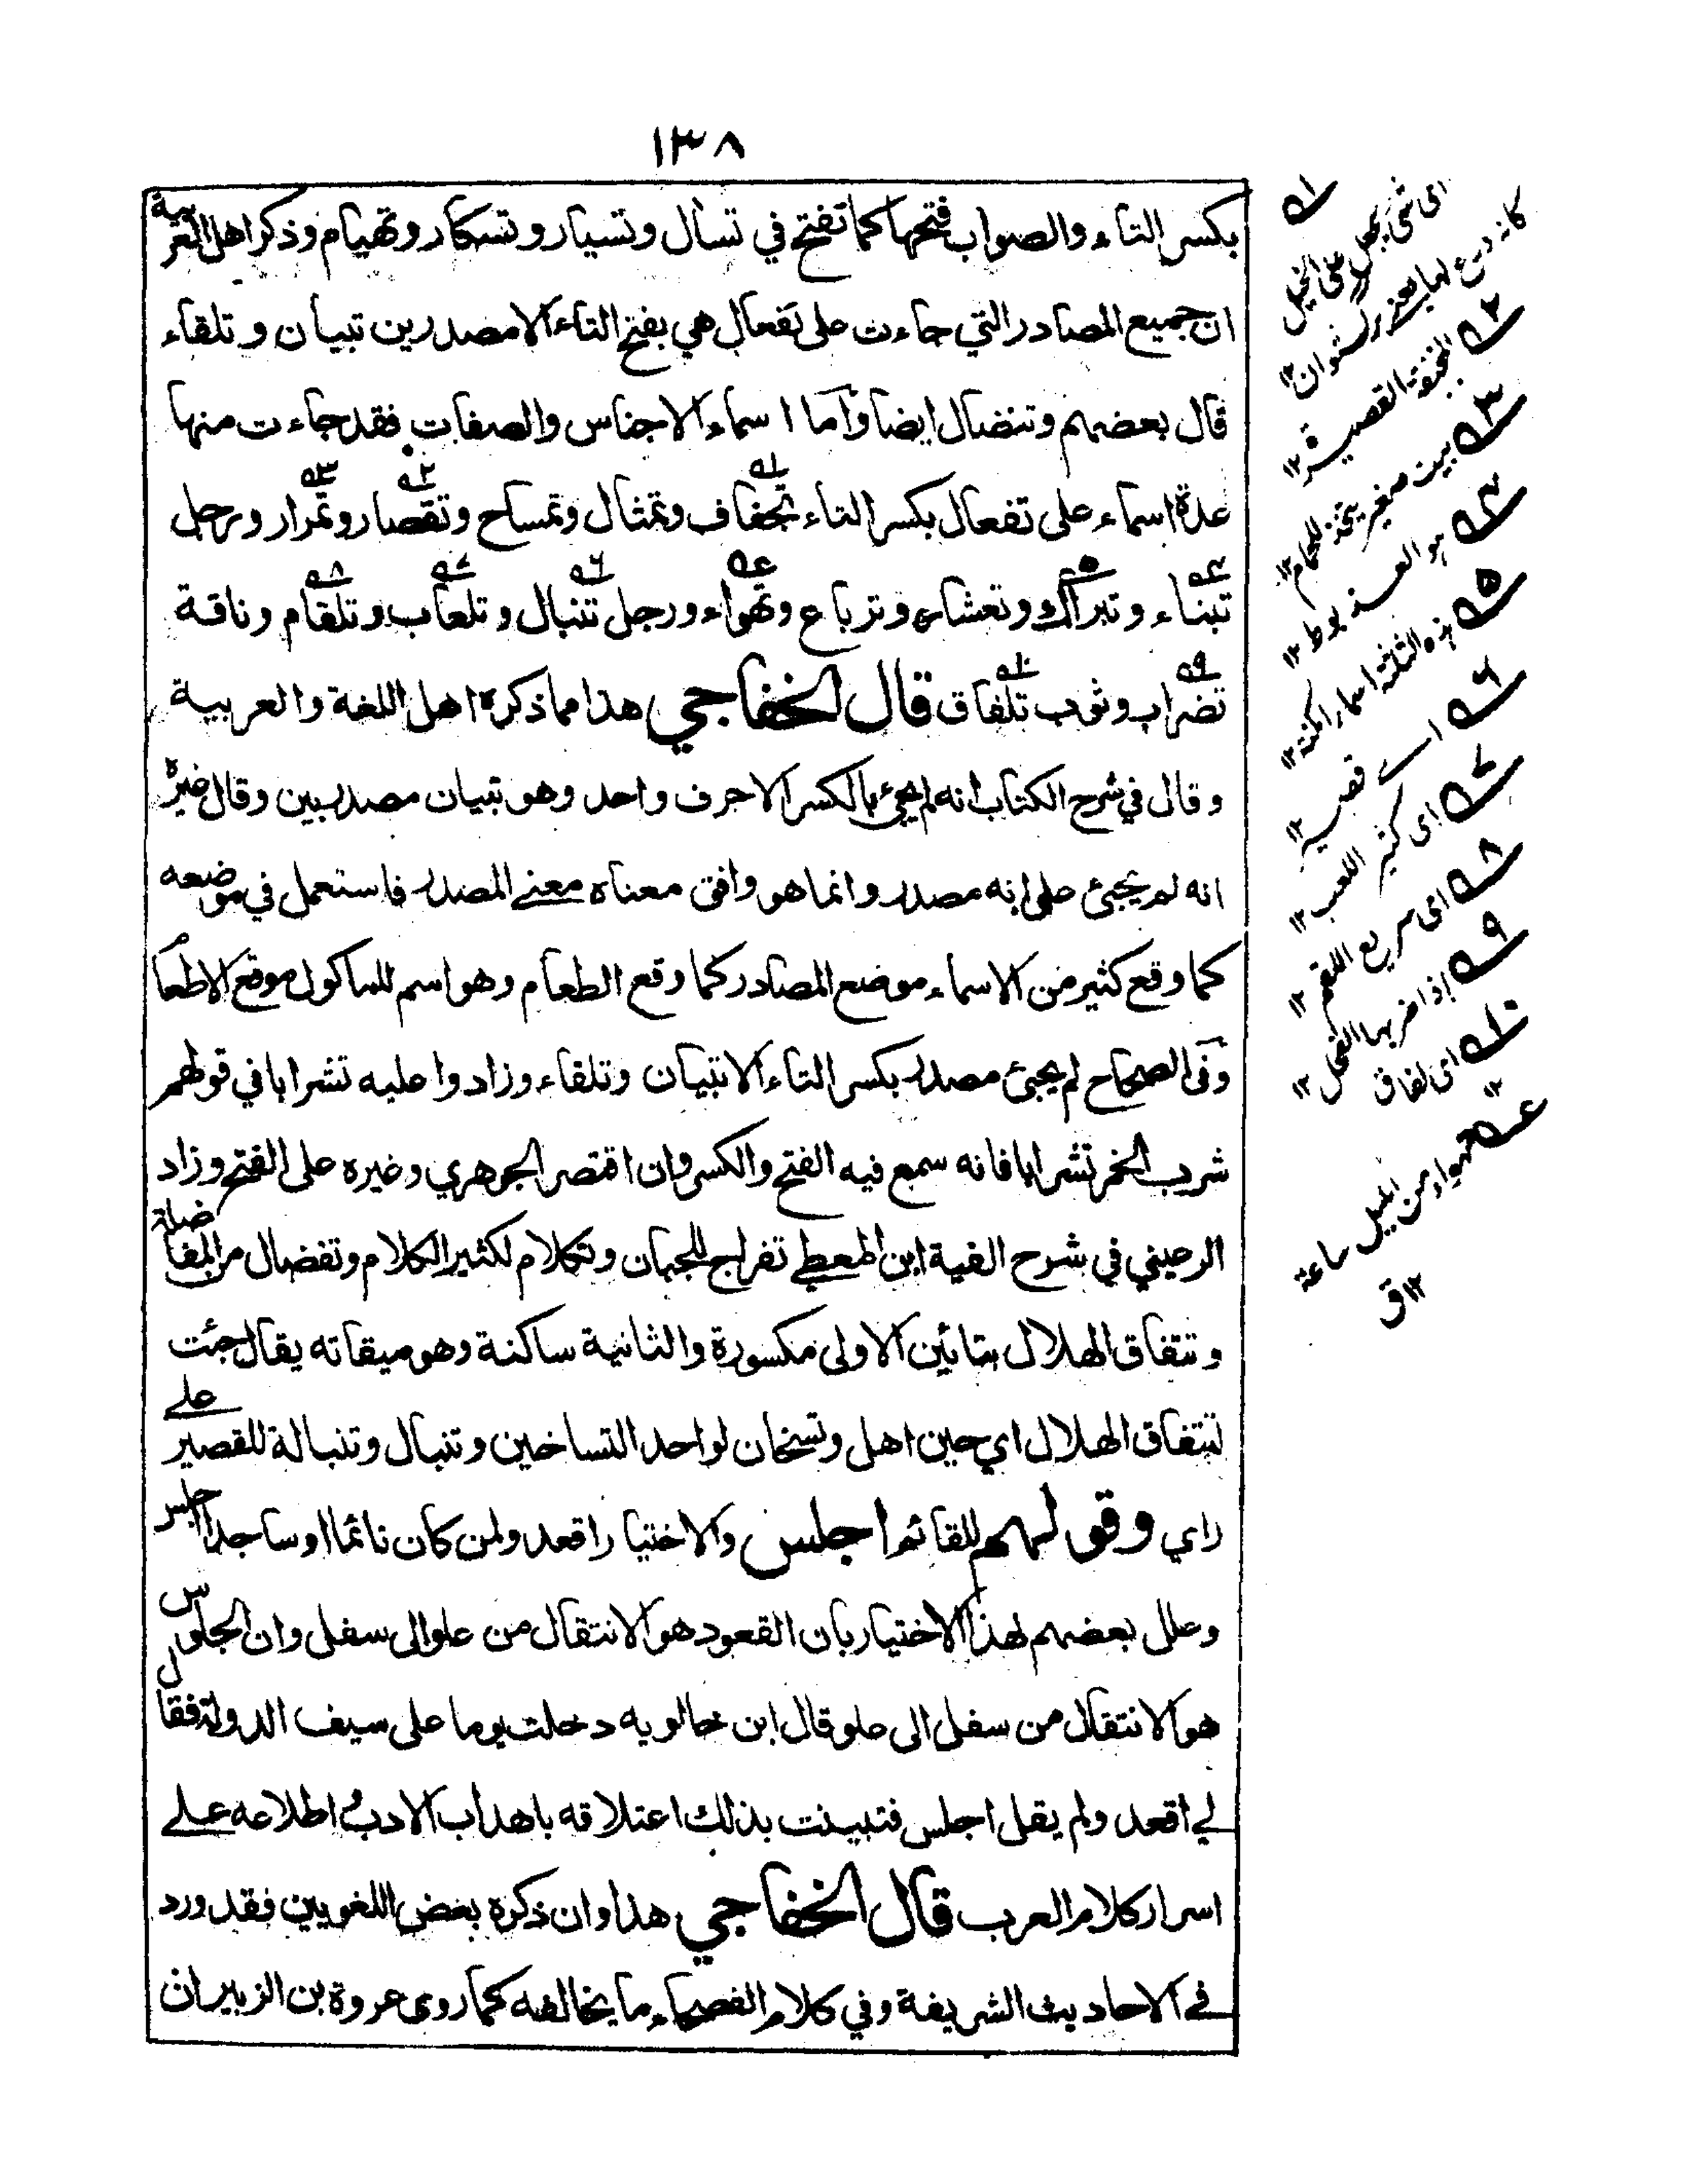 ١٣٨
بكسر التاء والصواب فتحها كما تفتح في تسآل وتسيار وتسكار وتهيام وذكر اهل العربية
ان جميع المصادر التي جاءت على تفعال هي بفتح التاء الا مصدرين تبيان وتلقاء
قال بعضهم وتنضال ايضا وآما اسماء الاجناس والصفات فقد جاءت منها
عدة اسماء على تفعال بكسر التاء تجفاف وتمثال وتمساح وتقصار وتمراد ورجل
تبناء وتبراك وتعشار وترباع وتهواء ورجل تنبال وتلعاب وتلقام وناقة
تضراب وثوب تلفاق قال الخفاجي هذا مما ذكره اهل اللغة والعربية
وقال في شرح الكتاب انه لم يجئ بالكسر الا حرف واحد وهو تبيان مصدر بين وقال غيره
انه لم يجئ على انه مصدر وانما هو وافق معناه معنے المصدر فاستعمل في موضعه
كما وقع كثير من الاسماء موضع المصادر كما وقع الطعام وهو اسم للماكول موقع الاطعام
وفى الصحاح لم يجئ مصدر بكسر التاء الا تبيان وتلقاء وزادوا عليه تشرابا في قولهم
شرب الخمر تشرابا فانه سمع فيه الفتح والكسر وان اقتصر الجوهري وغيره على الفتح وزاد
الرعيني في شرح الفية ابن المعطے تفراج للجبان وتكلام لكثير الكلام وتفضال من المفاضلة
وتتفاق الهلال بتائين الاولى مكسورة والثانية ساكنة وهو ميقاته يقال جئت
لتتفاق الهلال اي حين اهل وتسخان لواحد التساخين وتنبال وتنبالة للقصير علے
راي وقولهم للقائم اجلس والاختيار اقعد ولمن كان نائما او ساجدا اجلس
وعلل بعضهم لهذا الاختيار بان القعود هو الانتقال من علو الى سفل وان الجلوس
هو الانتقال من سفل الى علو قال ابن خالويه دخلت يوما على سيف الدولة فقال
لي اقعد ولم يقل اجلس فتبينت بذلك اعتلاقه باهداب الادب و اطلاعه علے
اسرار كلام العرب قال الخفاجي هذا وان ذكره بعض اللغويين فقد ورد
فے الاحاديث الشريفة وفي كلام الفصحاء ما يخالفه كما روى عروة بن الزبير ان
١ اى شئ يجعل على الخيل
كانه درع لها
٢ المخنقة القصيرة ١٢
٣ بيت صغير يتخذ للحمام ١٢
٤ هو العذيوط ١٢
٥ هذه الثلثة اسماء امكنة ١٢
٦ اے قصير ١٢
٧ اى كثير اللعب ١٢
٨ اى سريع اللقم ١٢
٩ اذا ضربها الفحل ١٢
١٠ اى لفاق ١٢
عه تهواء من الليل ساعة
١٢ ق